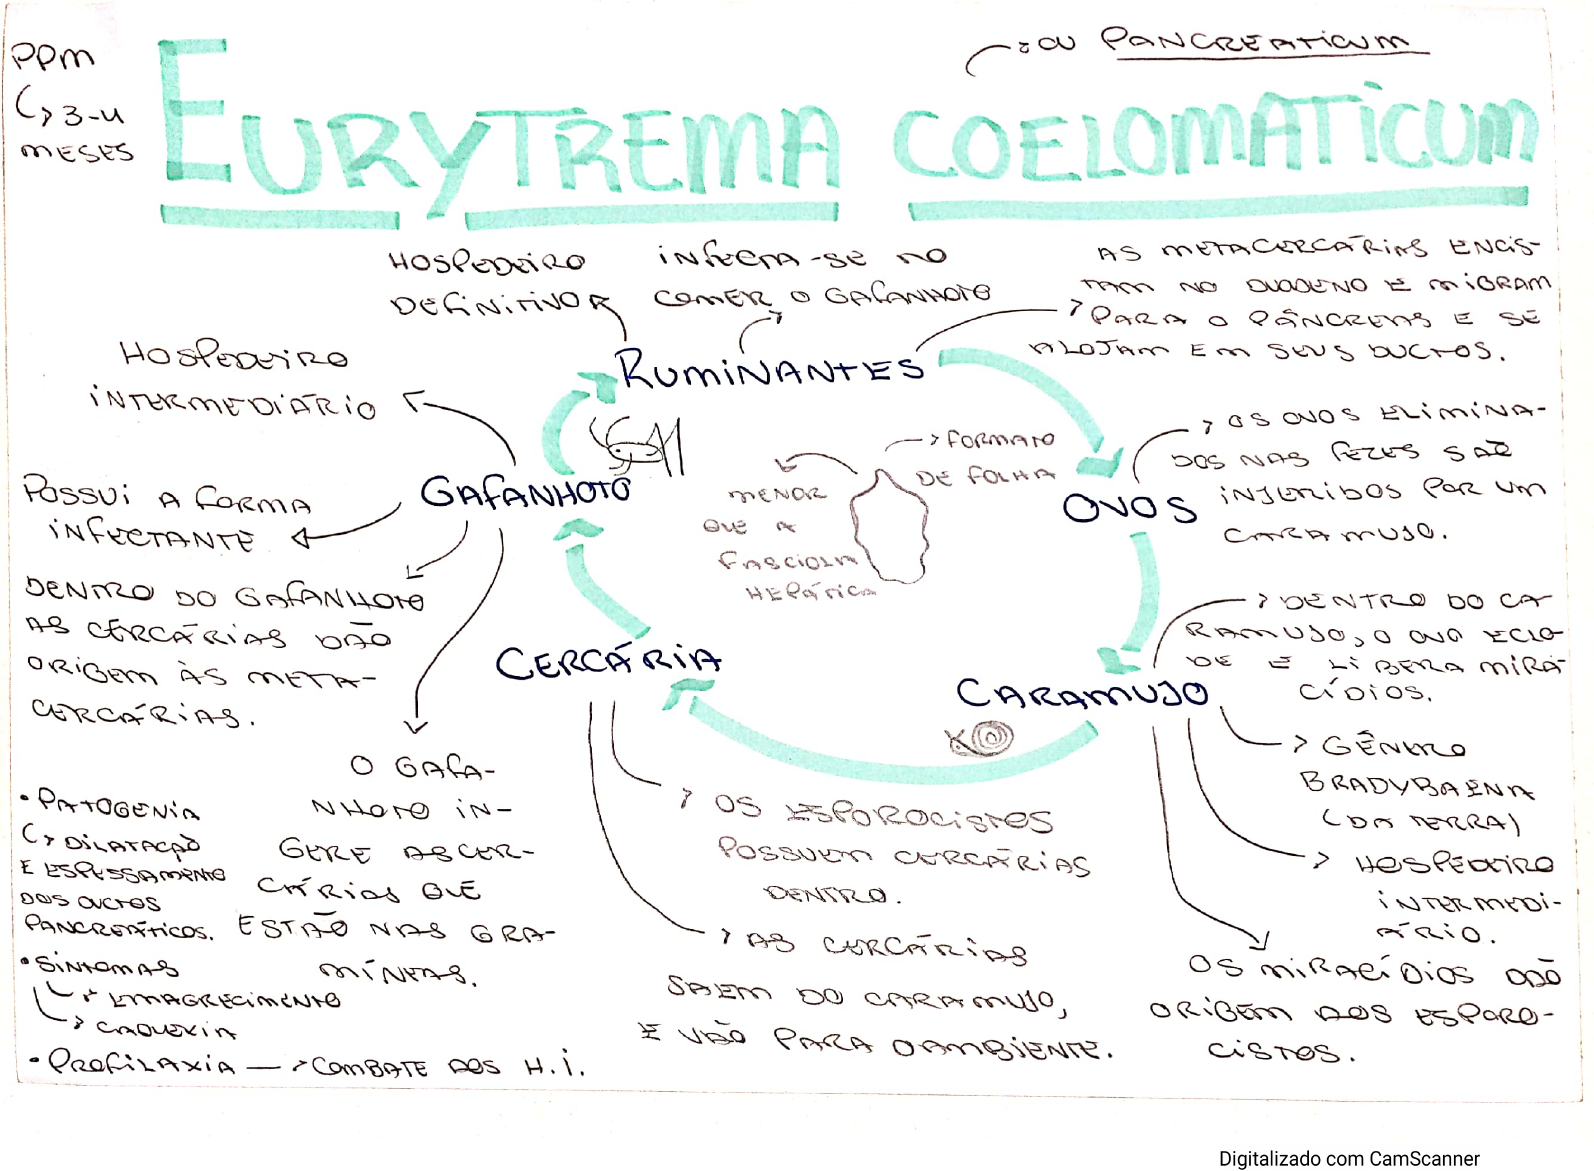 PPM
↳ 3-4
MESES
↗: OU PANCREATICUM
EURYTREMA COELOMATICUM
HOSPEDEIRO
DEFINITIVO
INFECTA-SE NO
COMER O GAFANHOTO
AS METACERCÁRIAS ENCIS-
TAM NO DUODENO E MIGRAM
PARA O PÂNCREAS E SE
ALOJAM EM SEUS DUCTOS.
RUMINANTES
HOSPEDEIRO
INTERMEDIÁRIO
OS OVOS ELIMINA-
DOS NAS FEZES SÃO
INJERIDOS POR UM
CARAMUJO.
FORMATO
DE FOLHA
MENOR
QUE A
FASCIOLA
HEPÁTICA
GAFANHOTO
OVOS
POSSUI A FORMA
INFECTANTE
DENTRO DO GAFANHOTO
AS CERCÁRIAS DÃO
ORIGEM ÀS META-
CERCÁRIAS.
CERCÁRIA
CARAMUJO
DENTRO DO CA
RAMUJO, O OVO ECLO-
DE E LIBERA MIRA-
CÍDIOS.
GÊNERO
BRADYBAENA
(DA TERRA)
HOSPEDEIRO
INTERMEDI-
ÁRIO.
OS MIRACÍDIOS DÃO
ORIGEM AOS ESPORO-
CISTOS.
O GAFA-
NHOTO IN-
GERE AS CER-
CÁRIAS QUE
ESTÃO NAS GRA-
MÍNEAS.
OS ESPOROCISTOS
POSSUEM CERCÁRIAS
DENTRO.
AS CERCÁRIAS
SAEM DO CARAMUJO,
E VÃO PARA O AMBIENTE.
• PATOGENIA
↳ DILATAÇÃO
E ESPESSAMENTO
DOS DUCTOS
PANCREÁTICOS.
• SINTOMAS
↳ EMAGRECIMENTO
↳ CAQUEXIA
• PROFILAXIA → COMBATE AOS H.I.
Digitalizado com CamScanner